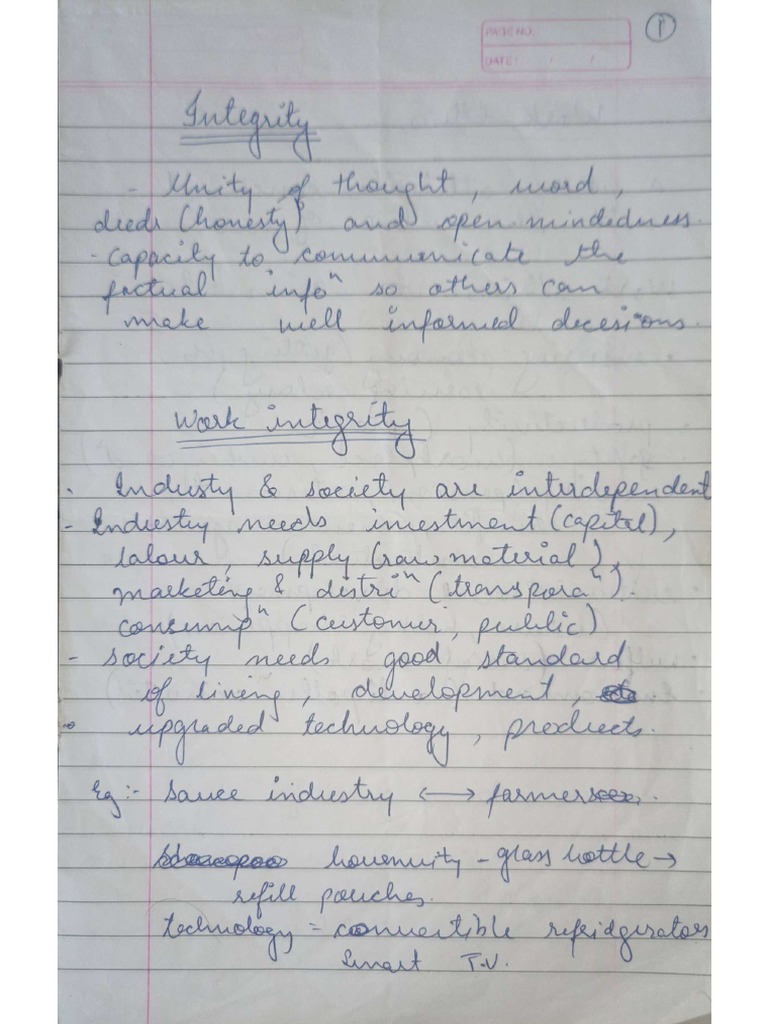 PAGE NO.
DATE: / /
1
Integrity
- Unity of thought, word,
deeds (honesty) and open mindedness.
- capacity to communicate the
factual infoⁿ so others can
make well informed decesions.
Work integrity
. Industy & society are interdependent
- Industry needs investment (capital),
labour, supply (raw material),
marketing & distriⁿ (transporaⁿ).
consumpⁿ (customer, public)
- society needs good standard
of living, development,
upgraded technology, products.
Eg :- sauce industry ⟷ farmers
- glass bottle →
refill pouches.
technology = convertible refridgerators
Smart T.V.